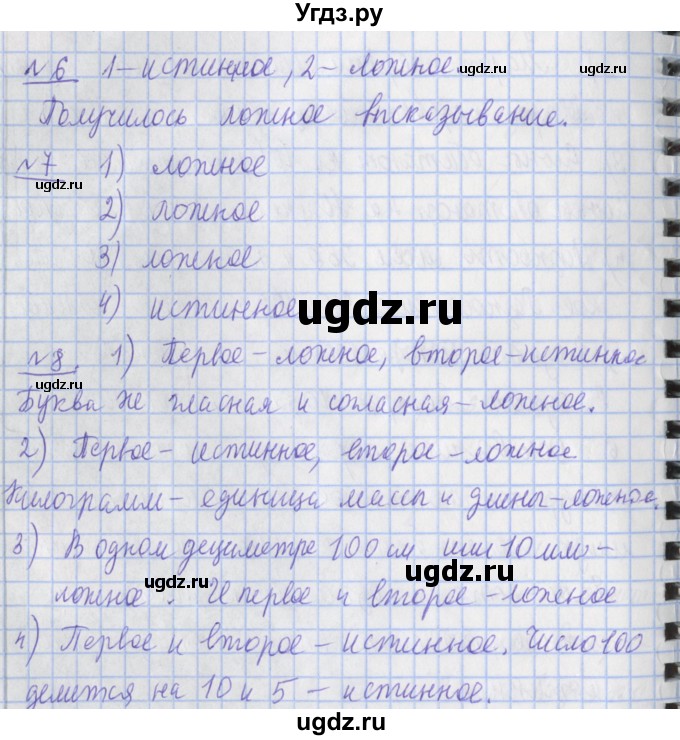 Угдз.ру
№6 1-истинное, 2-ложное.
Получилось ложное высказывание.
№7 1) ложное
2) ложное
3) ложное
4) истинное
№8. 1) Первое-ложное, второе-истинное
Буква Ж гласная и согласная-ложное.
2) Первое- истинное, второе-ложное
Килограмм- единица массы и длины-ложное.
3) В одном дециметре 100 см или 10 мм-
ложное. И первое и второе-ложное
4) Первое и второе-истинное. Число 100
делится на 10 и 5 - истинное.
ugdz.ru
ugdz.ru
ugdz.ru
ugdz.ru
ugdz.ru
ugdz.ru
ugdz.ru
ugdz.ru
ugdz.ru
ugdz.ru
ugdz.ru